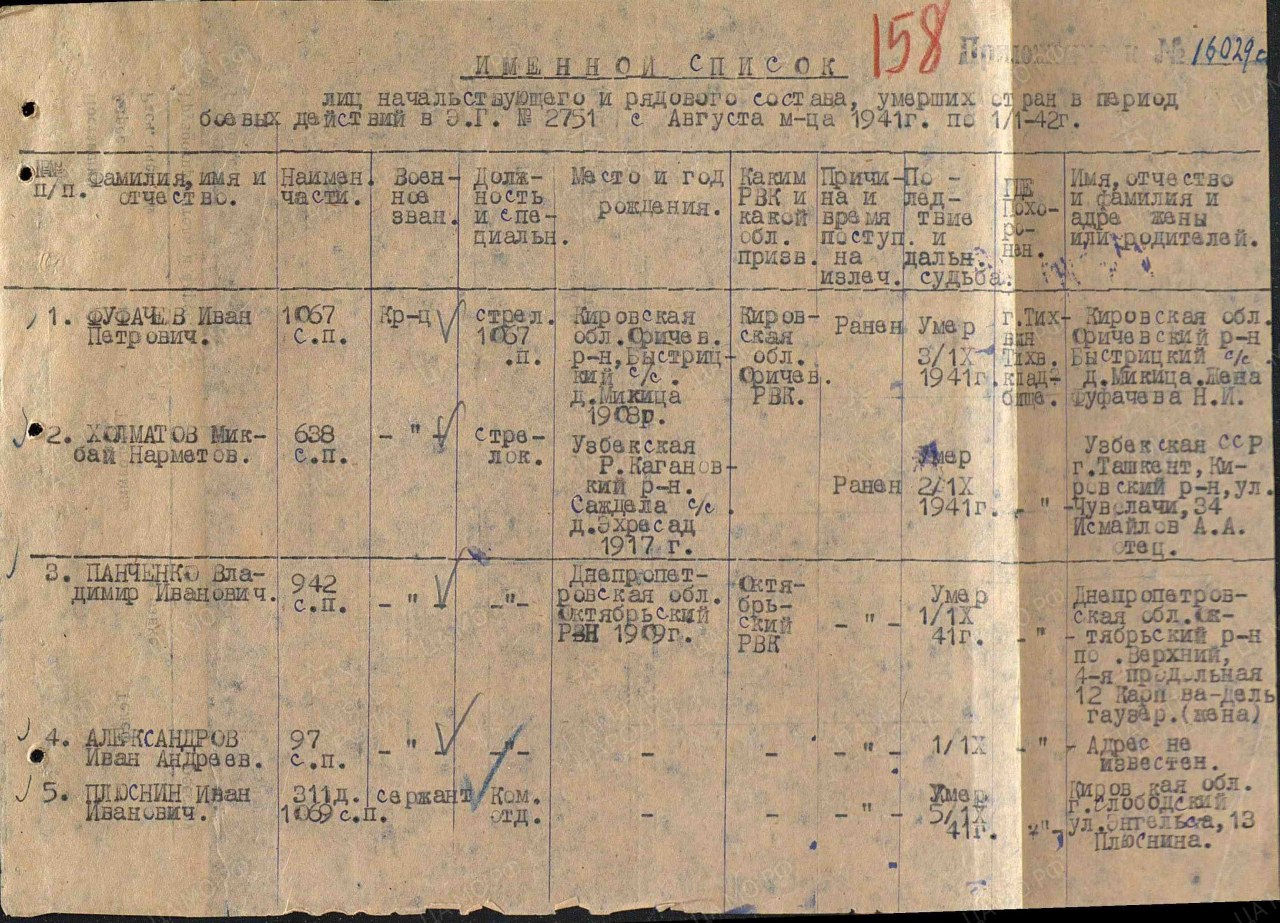 158
№ 16029с
ИМЕННОЙ СПИСОК
лиц начальствующего и рядового состава, умерших от ран в период
боевых действий в Э.Г. № 2751 с Августа м-ца 1941г. по 1/1-42г.
№№ п/п.
Фамилия, имя и отчество.
Наимен. части.
Воен- ное зван.
Долж- ность и спе- циальн.
Место и год рождения.
Каким РВК и какой обл. призв.
Причи- на и время поступ. на излеч.
По - лед- твие и дальн. судьба.
ГДЕ Похо- ро- нен.
Имя, отчество и фамилия и адре жены или родителей.
1. ФУФАЧЕВ Иван Петрович.
1067 с.п.
Кр-ц
стрел. 1067 .п.
Кировская обл.Оричев. р-н,Быстриц- кий с/с . д.Микица 1908р.
Киров- ская обл. Оричев. РВК.
Ранен
Умер 3/1Х 1941г.
г.Тих- вин Тихв. клад- бище.
Кировская обл. Оричевский р-н Быстрицкий с/с . д.Микица.Жена Фуфачева Н.И.
2. ХОЛМАТОВ Мик- бай Нарметов.
638 с.п.
- " -
стре- лок.
Узбекская Р.Каганов- кий р-н. Саждела с/с . д.Эхресад 1917 г.
Ранен
Умер 2/1Х 1941г.
- " -
Узбекская ССР г.Ташкент,Ки- ровский р-н,ул. Чувелачи,34 Исмайлов А.А. отец.
3. ПАНЧЕНКО Вла- димир Иванович.
942 с.п.
- " -
-"-
Днепропет- ровская обл. Октябрьский РВН 1909г.
Октя- брь- ский РВК
- " -
Умер 1/1Х 41г.
- " -
Днепропетров- ская обл.Ок- тябрьский р-н по .Верхний, 4-я продольная 12 Карпова-дель гаузер.(жена)
4. АЛЕКСАНДРОВ Иван Андреев.
97 с.п.
- " -
-"-
-
-
- " -
1/1Х
- " -
Адрес не известен.
5. ПЛЮСНИН Иван Иванович.
311д. 1069 с.п.
сержант
Ком. отд.
-
-
- " -
Умер 5/1Х 41г.
-"-
Киров кая обл. г.Слободский ул.Энгельса,13 Плюснина.